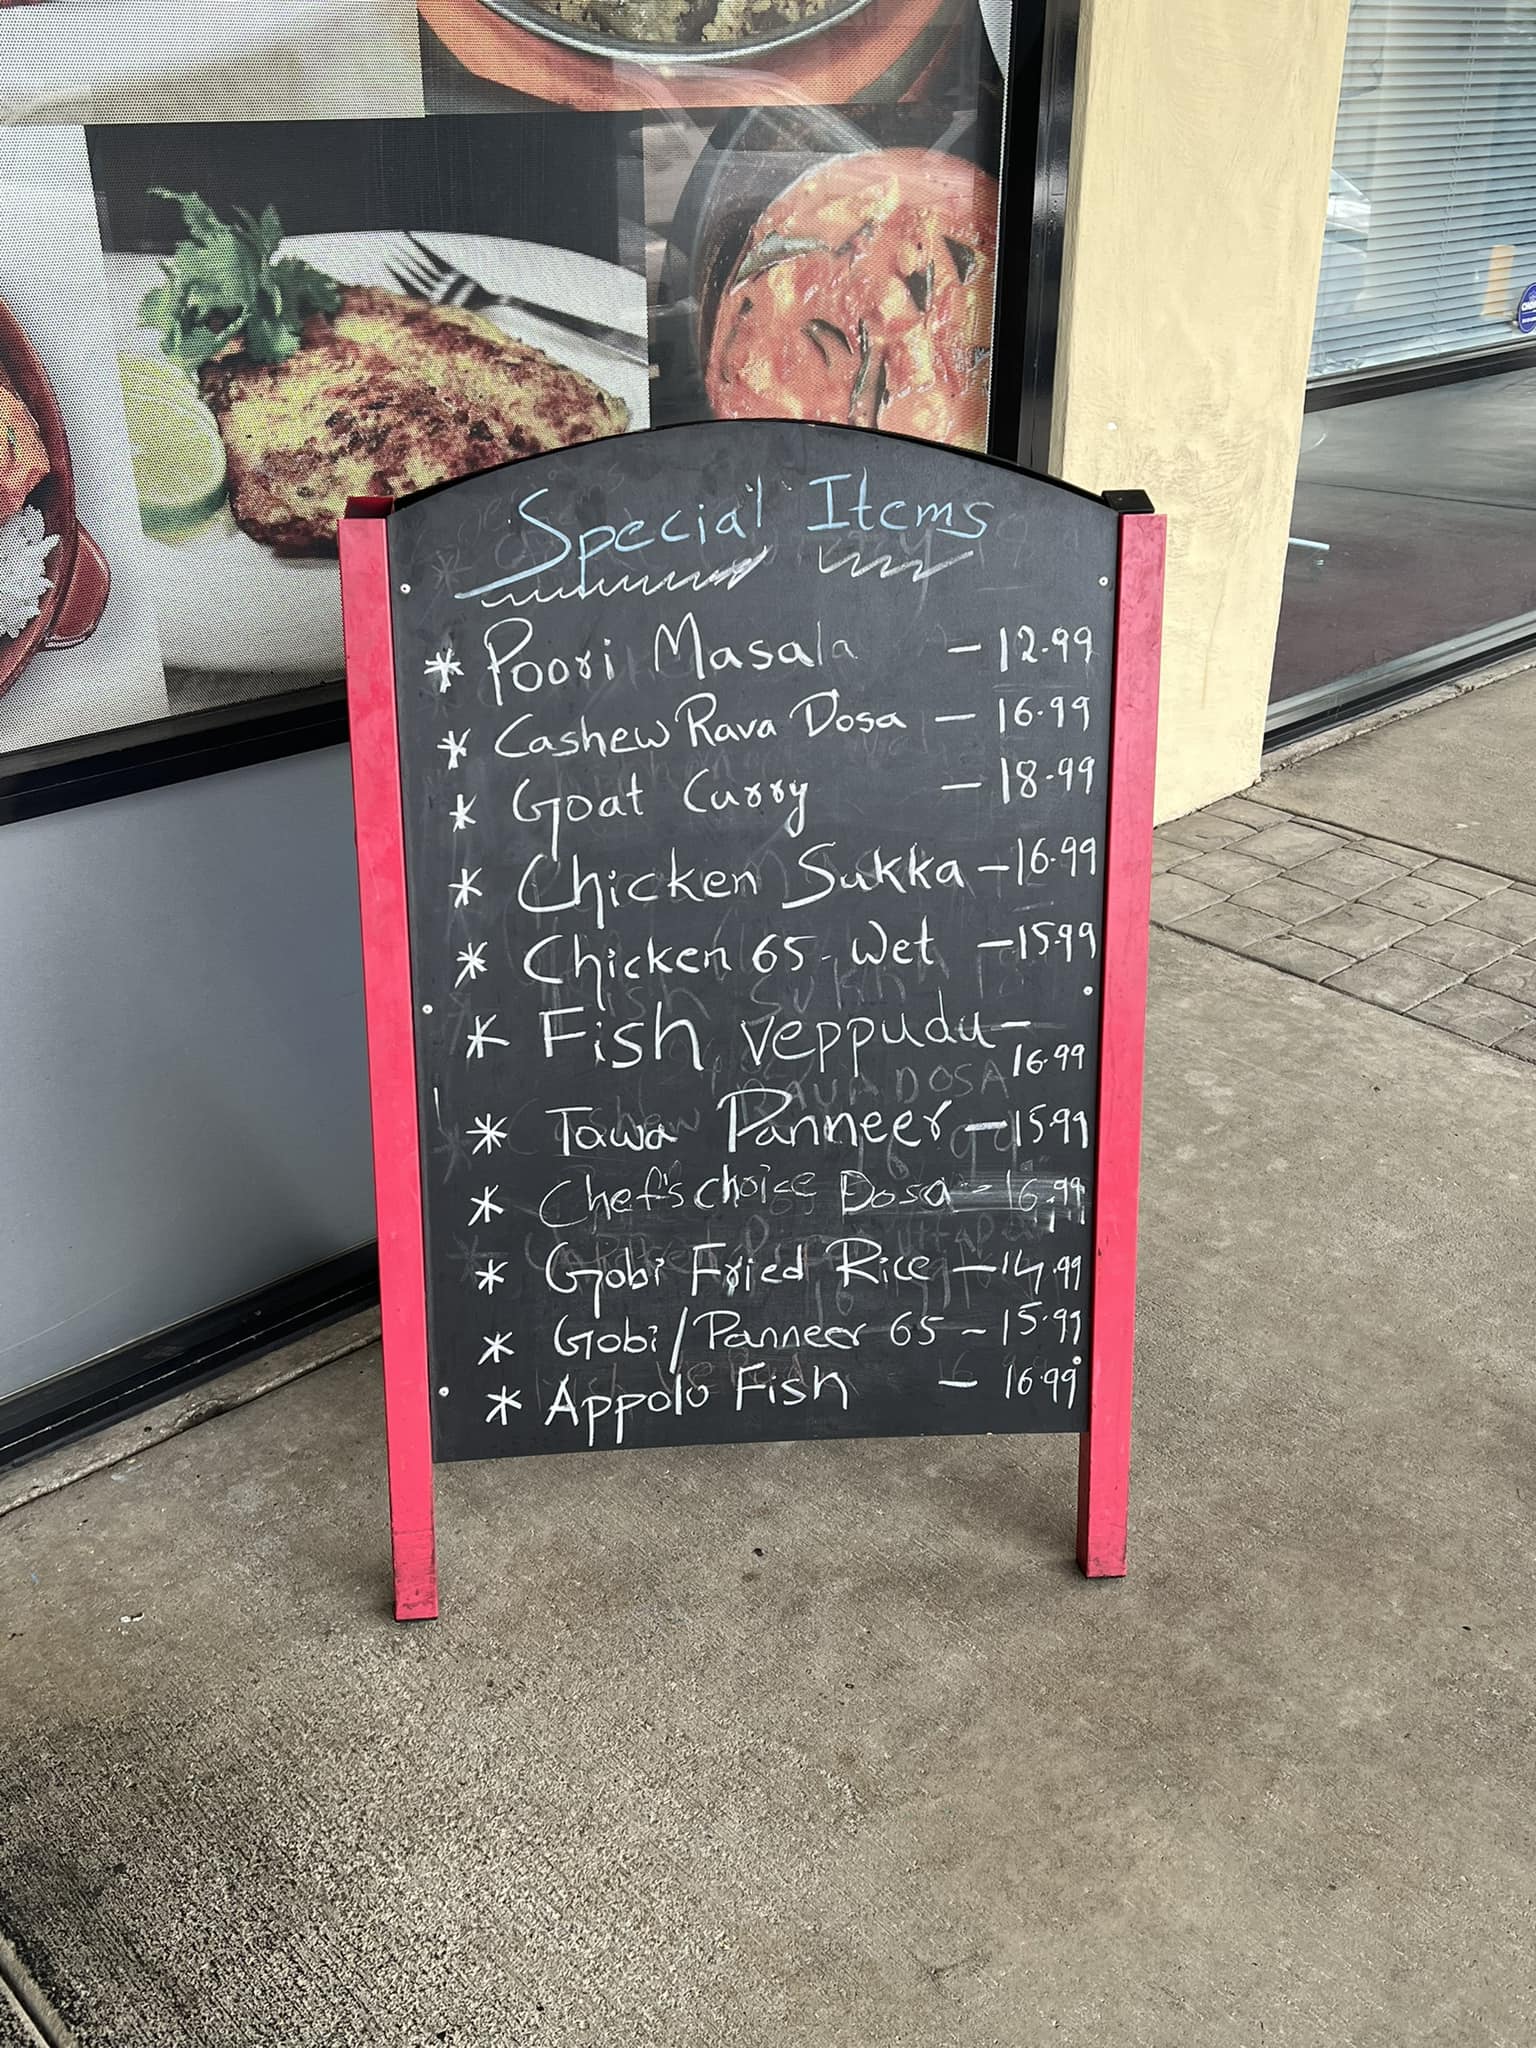 Special Items
* Poori Masala - 12.99
* Cashew Rava Dosa - 16.99
* Goat Curry - 18.99
* Chicken Sukka - 16.99
* Chicken 65 - Wet - 15.99
* Fish veppudu -
16.99
* Tawa Panneer - 15.99
* Chef's choice Dosa - 16.99
* Gobi Fried Rice - 14.99
* Gobi/Panneer 65 - 15.99
* Appolo Fish - 16.99